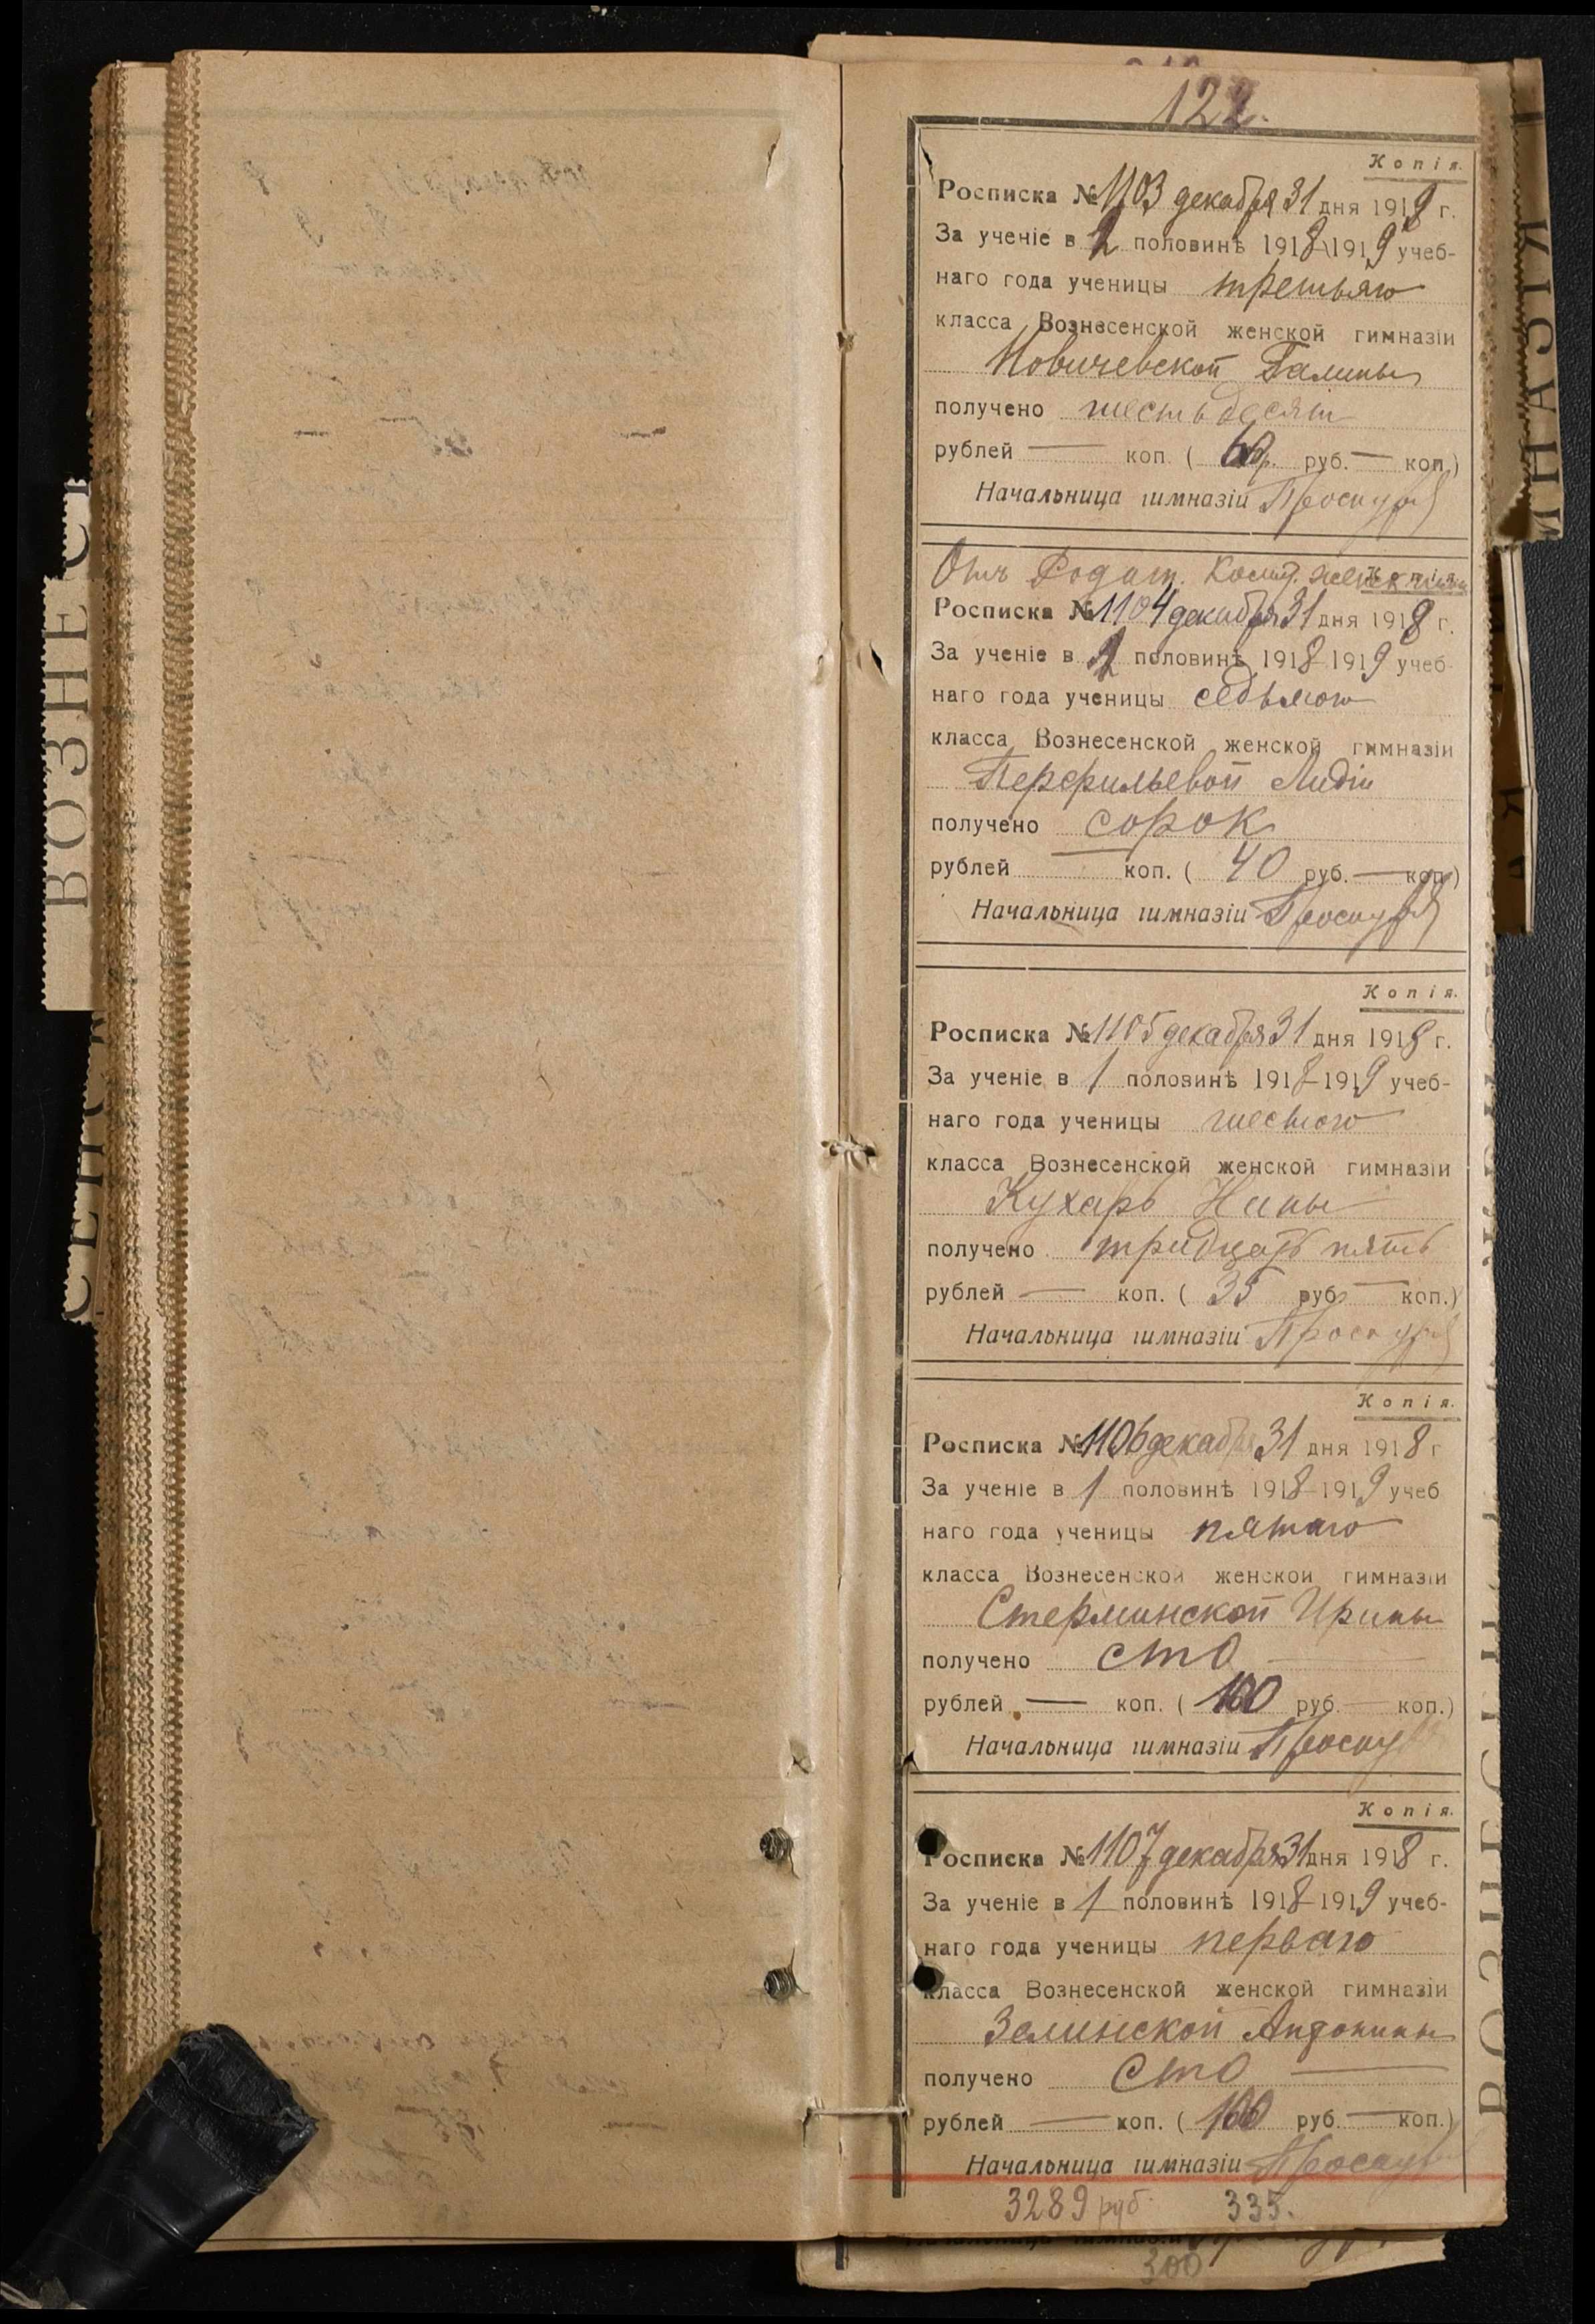 122.
Копія.
Росписка № 1103 декабря 31 дня 1918 г.
За ученіе в 2 половинѣ 1918\1919 учеб-
наго года ученицы третьяго
класса Вознесенской женской гимназіи
Новичевской Галины
получено шестьдесят
рублей — коп. ( 60 р. руб. — коп.)
Начальница гимназіи
Отъ Родит. Комит. женск. гимн.
Копія.
Росписка № 1104 декабря 31 дня 1918 г.
За ученіе в 2 половинѣ 1918-1919 учеб-
наго года ученицы седьмого
класса Вознесенской женской гимназіи
Перфильевой Лидіи
получено сорок
рублей — коп. ( 40 руб. — коп.)
Начальница гимназіи
Копія.
Росписка № 1105 декабря 31 дня 1918 г.
За ученіе в 1 половинѣ 1918-1919 учеб-
наго года ученицы шестого
класса Вознесенской женской гимназіи
Кухарь Нины
получено тридцать пять
рублей — коп. ( 35 руб. — коп.)
Начальница гимназіи
Копія.
Росписка № 1106 декабря 31 дня 1918 г
За ученіе в 1 половинѣ 1918-1919 учеб
наго года ученицы пятаго
класса Вознесенской женской гимназіи
Стерминской Ирины
получено сто —
рублей — коп. ( 100 руб — коп.)
Начальница гимназіи
Копія.
Росписка № 1107 декабря 31 дня 1918 г.
За ученіе в 1 половинѣ 1918-1919 учеб-
наго года ученицы перваго
класса Вознесенской женской гимназіи
Зелинской Андонины
получено сто —
рублей — коп. ( 100 руб. — коп.)
Начальница гимназіи
3289 руб. 335.
300